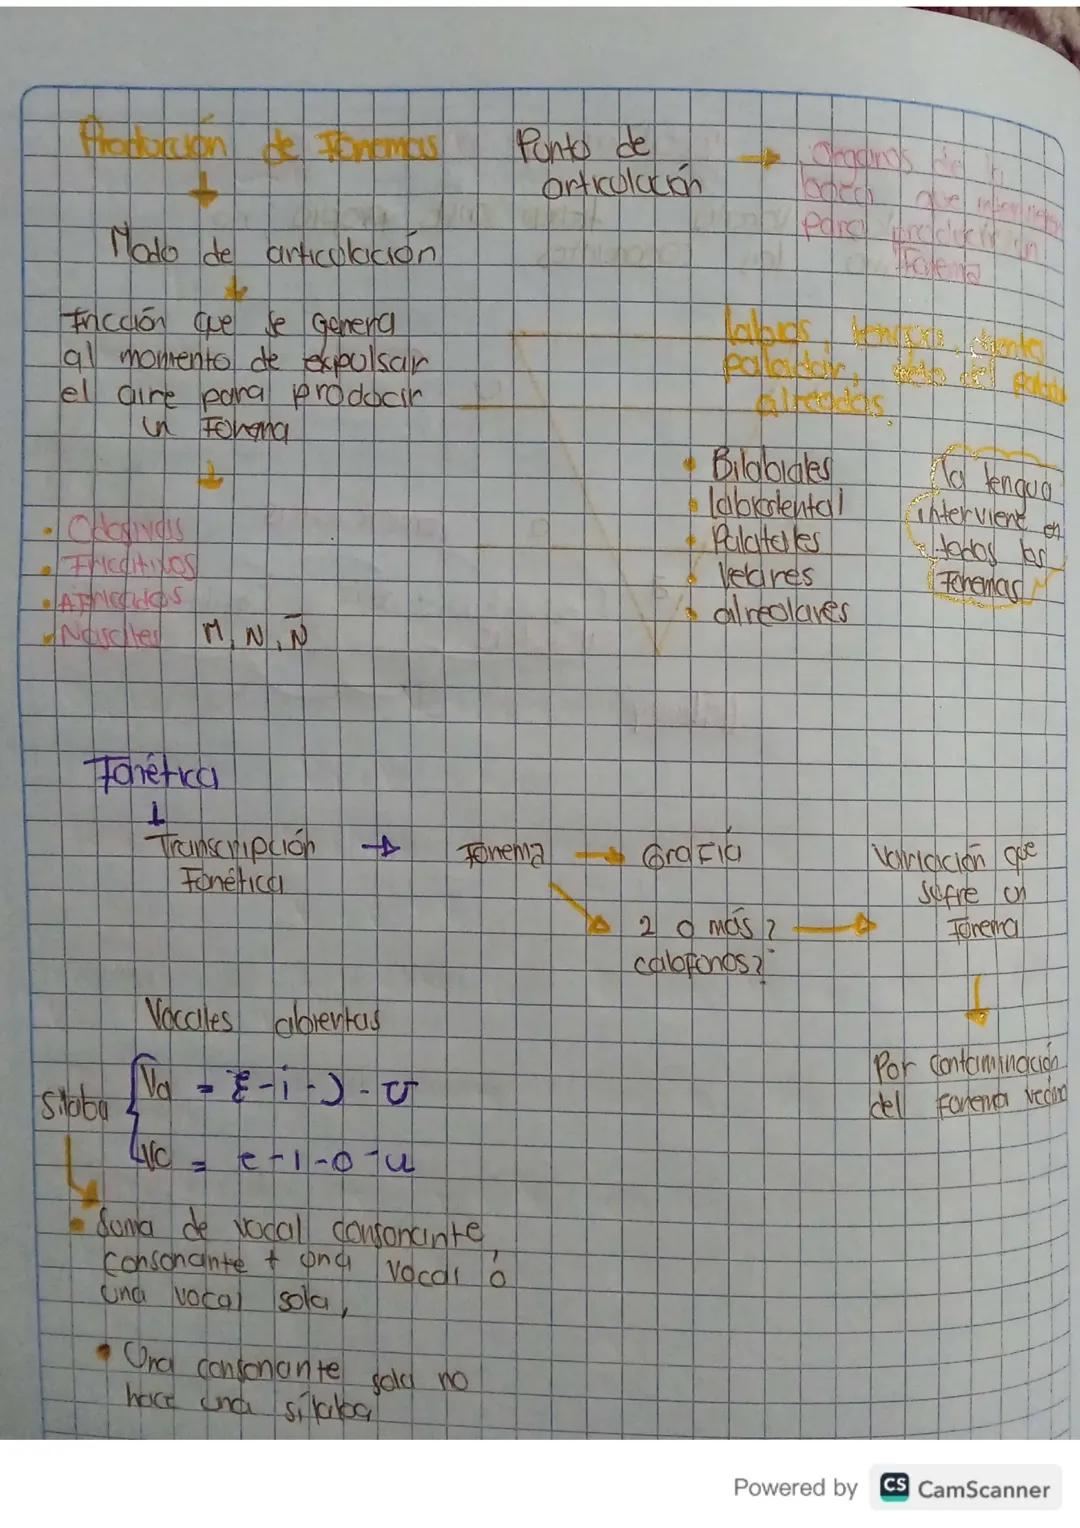 Producción de Fonemas
Modo de articulación
Fricción que se genera
al momento de expulsar
el aire para producir
un Fonema
• Oclusivas
• Fricativos
• Africados
• Nasales M, N, Ñ
Punto de
articulación
Organos de la
boca que intervienen
para producir un
Fonema
labios, lengua, diente
paladar, velo del paladar
alreodos
• Bilabiales
• labiodental
• Palatales
• Velares
• alreolares
la lengua
interviene en
todos los
Fonemas
Fonética
Transcripción
Fonética
Fonema → Grafía
2 o más?
calofonos?
Variación que
sufre un
Fonema
Por contaminación
del Fonema vecino
Vocales abientas
Silaba
Va =
Vc = e-i-o-u
• Suma de vocal consonante,
consonante + una vocal ó
una vocal sola,
• Una consonante sola no
hace una sílaba
Powered by CS CamScanner